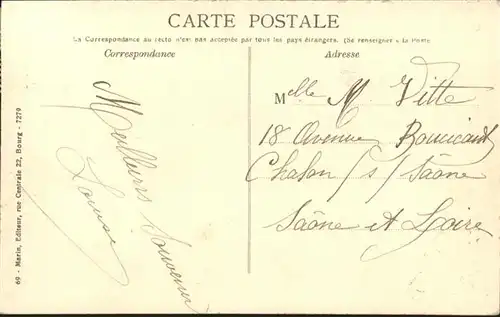 CARTE POSTALE
La Correspondance au recto n'est pas acceptée par tous les pays étrangers. (Se renseigner à la Poste
Correspondance
Adresse
Meilleurs Souvenirs
Louise
Melle M. Vitte
18 Avenue Boucicaut
Chalon / s / Saône
Saône et Loire
69 - Marin, Editeur, rue Centrale 22, Bourg - 7279